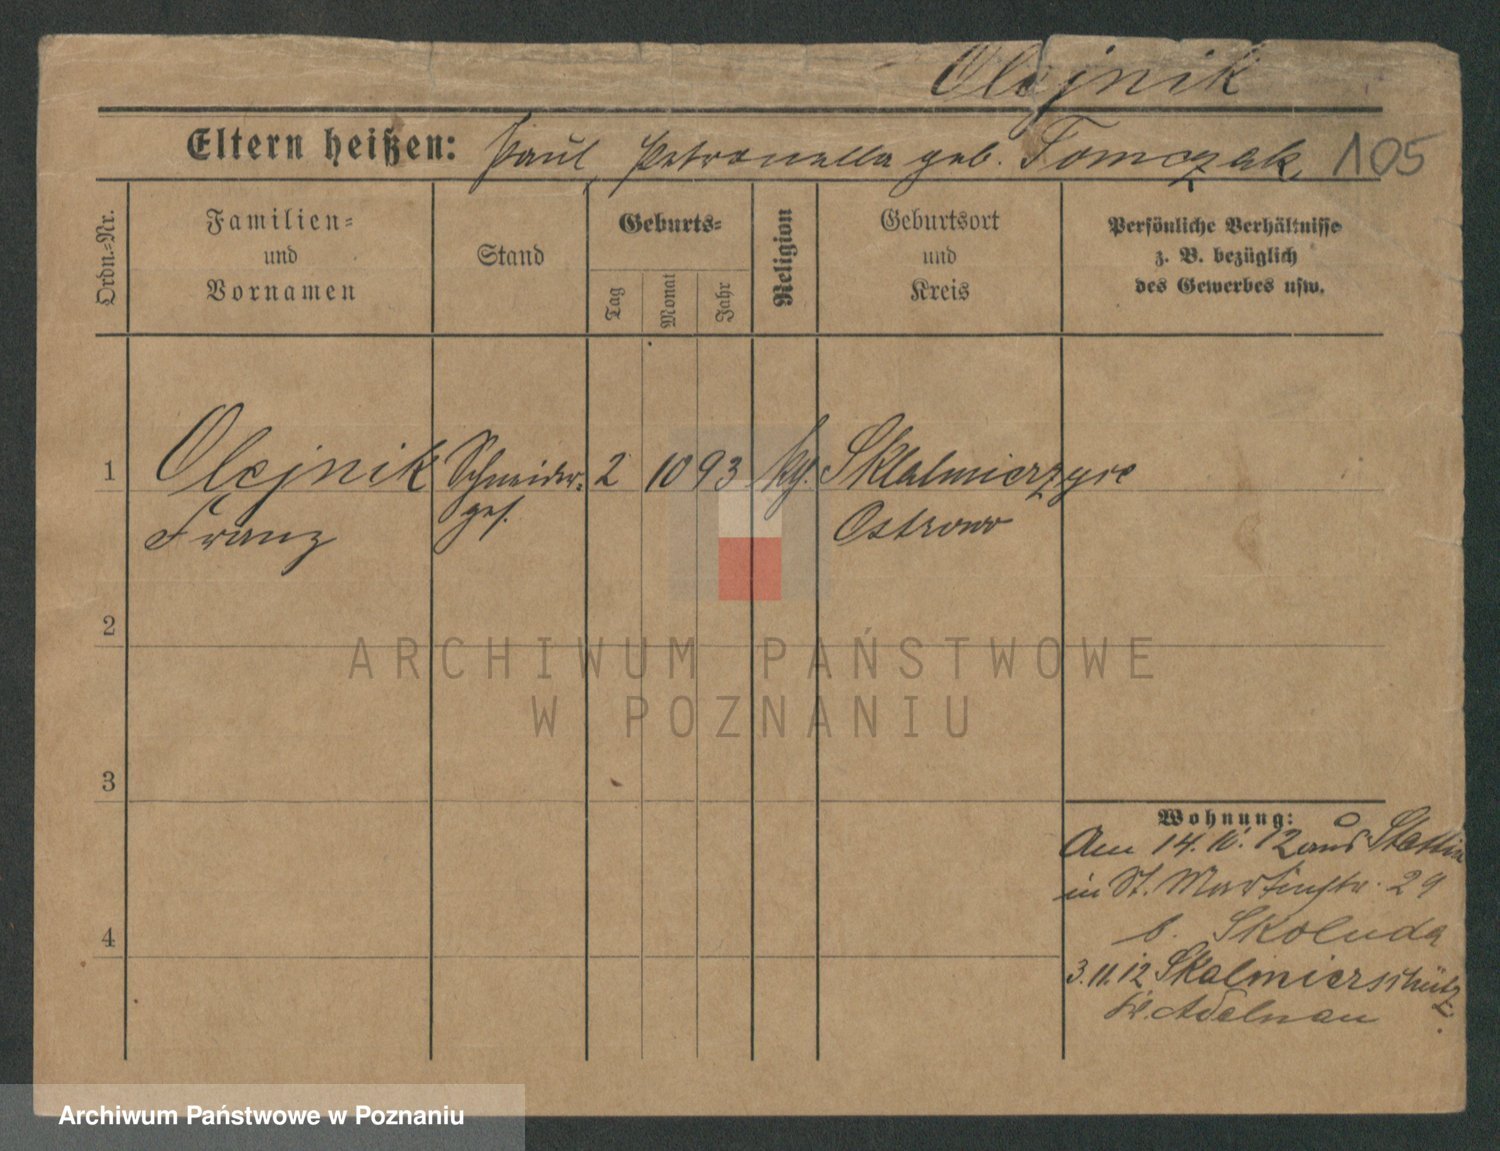 Olejnik
Eltern heißen: Paul, Petronella geb. Tomczak 105
Ordn.-Nr.
Familien-
und
Vornamen
Stand
Geburts-
Tag
Monat
Jahr
Religion
Geburtsort
und
Kreis
Persönliche Verhältnisse
z. B. bezüglich
des Gewerbes usw.
1 Olejnik Schneider- 2 10 93 Sklalmierzyce
Franz ges. Ostrowo
2
ARCHIWUM PAŃSTWOWE
W POZNANIU
3
Wohnung:
Am 14.10.12 aus Stettin
in St. Martinstr. 29
b. Skoluda
4
3.11.12 Skalmierschütz
Kr. Adelnau
Archiwum Państwowe w Poznaniu